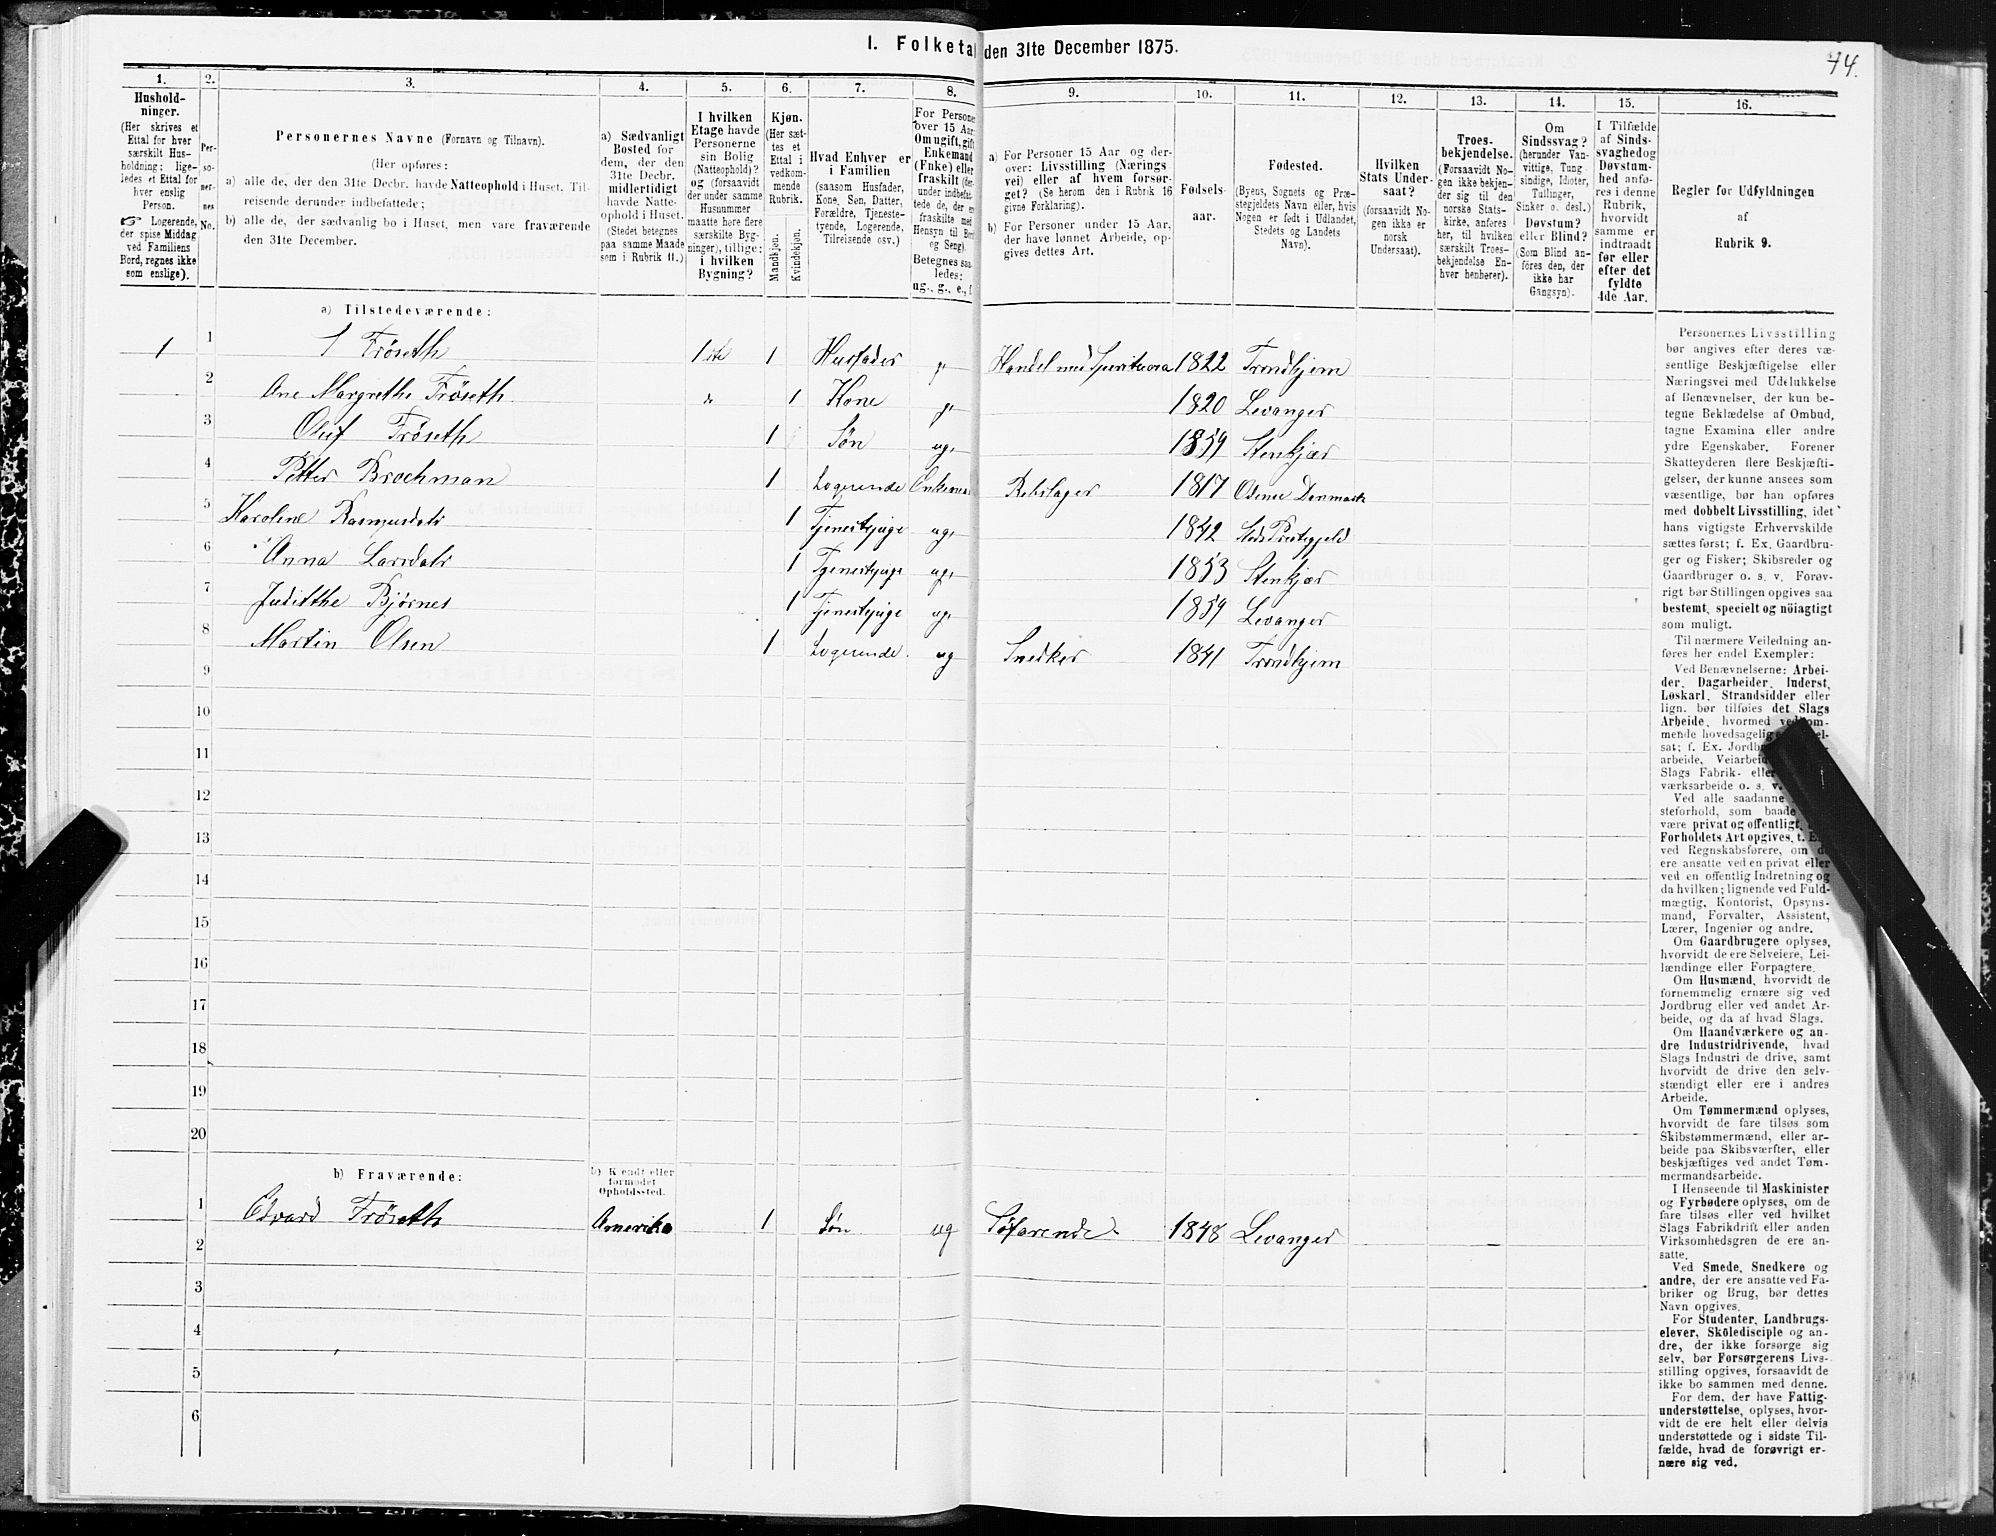 I. Folketal den 31te December 1875.
74.
1. 2. 3. 4. 5. 6. 7. 8. 9. 10. 11. 12. 13. 14. 15. 16.
Hushold-
ninger.
(Her skrives et
Ettal for hver
særskilt Hus-
holdning; lige-
ledes et Ettal for
hver enslig
Person.
☞ Logerende,
der spise Middag
ved Familiens
Bord, regnes ikke
som enslige).
Per-
so-
ner-
nes
No.
Personernes Navne (Fornavn og Tilnavn).
(Her opføres:
a) alle de, der den 31te Decbr. havde Natteophold i Huset, Til-
reisende derunder indbefattede;
b) alle de, der sædvanlig bo i Huset, men vare fraværende
den 31te December.
a) Sædvanligt
Bosted for
dem, der den
31te Decbr.
midlertidigt
havde Natte-
ophold i Huset.
(Stedet betegnes
paa samme Maade
som i Rubrik 11.)
I hvilken
Etage havde
Personerne
sin Bolig
(Natteophold)?
og (forsaavidt
der under samme
Husnummer
maatte høre flere
særskilte Byg-
ninger), tillige:
i hvilken
Bygning?
Kjøn.
(Her sæt-
tes et
Ettal i
vedkom-
mende
Rubrik.
Mandkjøn.
Kvindekjøn.
Hvad Enhver er
i Familien
(saasom Husfader,
Kone, Søn, Datter,
Forældre, Tjeneste-
tyende, Logerende,
Tilreisende osv.)
For Persone
over 15 Aar
Om ugift, gift
Enkemand
(Enke) eller
fraskilt (der-
under indbefat-
tede de, der er
fraskilte med
Hensyn til Bord
og Seng).
Betegnes saa-
ledes:
ug., g., e., f.
a) For Personer 15 Aar og der-
over: Livsstilling (Nærings
vei) eller af hvem forsør-
get? (Se herom den i Rubrik 16
givne Forklaring).
b) For Personer under 15 Aar,
der have lønnet Arbeide, op-
gives dettes Art.
Fødsels-
aar.
Fødested.
(Byens, Sognets og Præ-
stegjeldets Navn eller, hvis
Nogen er født i Udlandet,
Stedets og Landets
Navn).
Hvilken
Stats Under-
saat?
(forsaavidt No-
gen ikke er
norsk
Undersaat).
Troes-
bekjendelse.
(Forsaavidt No-
gen ikke bekjen-
der sig til den
norske Stats-
kirke, anføres
her, til hvilken
særskilt Troes-
bekjendelse En-
hver henhører).
Om
Sindssvag?
(herunder Van-
vittige, Tung-
sindige, Idioter,
Tullinger,
Sinker o. desl.)
Døvstum?
eller Blind?
(Som Blind an-
føres den, der
ikke har
Gangsyn).
I Tilfælde
af Sinds-
svaghed og
Døvstum-
hed anfø-
res i denne
Rubrik,
hvorvidt
samme er
indtraadt
før eller
efter det
fyldte
4de Aar.
Regler for Udfyldningen
af
Rubrik 9.
a) Tilstedeværende:
1 1 Frøseth 1ste 1 Husfader g. Handel med Spirituosa 1822 Trondhjem
2 Ane Margrethe Frøseth d 1 Kone g. 1820 Levanger
3 Oluf Frøseth 1 Søn ug. 1859 Stenkjær
4 Petter Brochman 1 Logerende Enkemand Rebslager 1817 Odense Danmark
5 Karoline Rasmusdatr 1 Tjenestepige ug. 1842 Præstegjeld
6 Anna Larsdatr 1 Tjenestepige ug. 1853 Stenkjær
7 Judithe Bjørnes 1 Tjenestepige ug. 1859 Levanger
8 Martin Olsen 1 Logerende. ug Snedker 1841 Trondhjem
9
10
11
12
13
14
15
16
17
18
19
20
b) Fraværende:
b) Kjendt eller
formodet
Opholdssted.
1 Edvard Frøseth Amerika 1 Søn ug Søfarende 1848 Levanger
2
3
4
5
6
Personernes Livsstilling
bør angives efter deres væ-
sentlige Beskjæftigelse eller
Næringsvei med Udelukkelse
af Benævnelser, der kun be-
tegne Beklædelse af Ombud,
tagne Examina eller andre
ydre Egenskaber. Forener
Skatteyderen flere Beskjæfti-
gelser, der kunne ansees som
væsentlige, bør han opføres
med dobbelt Livsstilling, idet
hans vigtigste Erhvervskilde
sættes først; f. Ex. Gaardbru-
ger og Fisker; Skibsreder og
Gaardbruger o. s. v. Forøv-
rigt bør Stillingen opgives saa
bestemt, specielt og nöiagtigt
som muligt.
Til nærmere Veiledning an-
føres her endel Exempler:
Ved Benævnelserne: Arbei-
der, Dagarbeider, Inderst,
Løskarl, Strandsidder eller
lign. bør tilføies det Slags
Arbeide, hvormed vedkom-
mende hovedsagelig
sat; f. Ex.
arbeide,
Slags Fabrik- eller
værksarbeide o. s. v.
Ved alle saadanne
steforhold, som baade
være privat og offentligt,
Forholdets Art opgives, t. Ex.
ved Regnskabsførere, om de
ere ansatte ved en privat eller
ved en offentlig Indretning og
da hvilken; lignende ved Fuld-
mægtig, Kontorist, Opsyns-
mand, Forvalter, Assistent,
Lærer, Ingeniør og andre.
Om Gaardbrugere oplyses,
hvorvidt de ere Selveiere, Lei-
lændinge eller Forpagtere.
Om Husmænd, hvorvidt de
fornemmelig ernære sig ved
Jordbrug eller ved andet Ar-
beide, og da af hvad Slags.
Om Haandværkere og an-
dre Industridrivende, hvad
Slags Industri de drive, samt
hvorvidt de drive den selv-
stændigt eller ere i andres
Arbeide.
Om Tømmermænd oplyses,
hvorvidt de fare tilsøs som
Skibstømmermænd, eller ar-
beide paa Skibsværfter, eller
beskjæftiges ved andet Tøm-
mermandsarbeide.
I Henseende til Maskinister
og Fyrbødere oplyses, om de
fare tilsøs eller ved hvilket
Slags Fabrikdrift eller anden
Virksomhedsgren de ere an-
satte.
Ved Smede, Snedkere og
andre, der ere ansatte ved Fa-
briker og Brug, bør dettes
Navn opgives.
For Studenter, Landbrugs-
elever, Skoledisciple og an-
dre, der ikke forsørge sig
selv, bør Forsørgerens Livs-
stilling opgives, forsaavidt de
ikke bo sammen med denne.
For dem, der have Fattig-
understøttelse, oplyses, hvor-
vidt de ere helt eller delvis
understøttede og i sidste Til-
fælde, hvad de forøvrigt er-
nære sig ved.